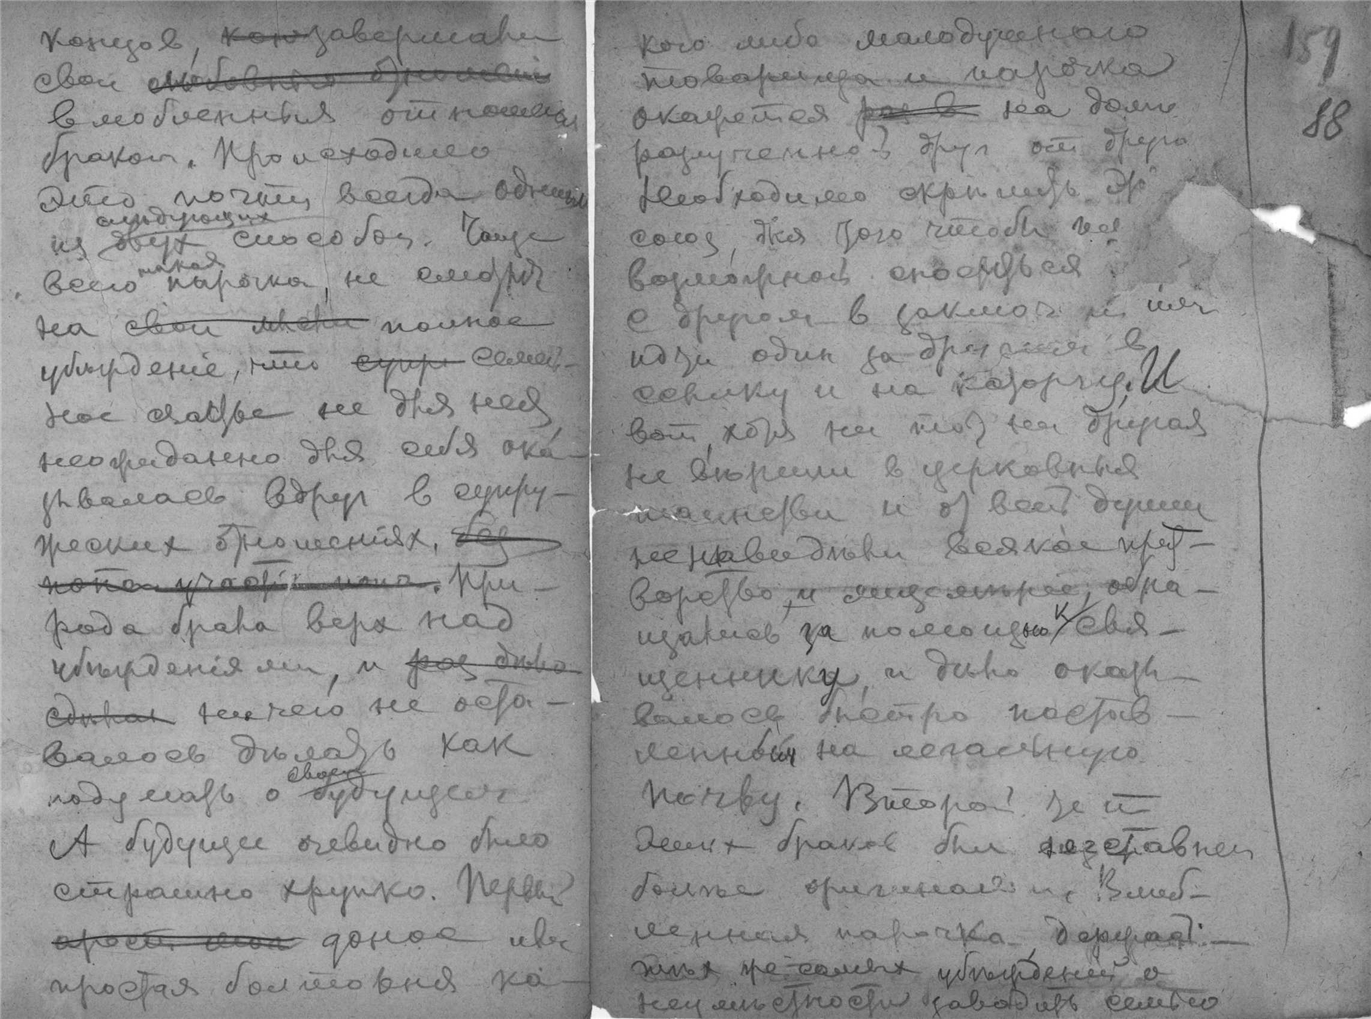 концов, завершали
свои любовныя отношенiя
влюбленныя отношенiя
браком. Происходило
это почти всегда одним
следующих
из двух способов. Чаще
такая
всего парочка, не смотря
на свои полное
убѣжденiе, что супр семей-
ное счастье не для нея,
неожиданно для себя ока-
зывалась вдруг в супру-
жеских отношенiях, без
попа участiя попа. При-
рода брала верх над
убѣжденiями, и раз дѣло
сдѣлан ничего не оста-
валось дѣлать как
своем
подумать о будущем.
А будущее очевидно было
страшно хрупко. Первый
арест донос или
простая болтовня ка-
159
88
кого либо малодушнаго
товарища и парочка
окажется на долго
разлученной друг от друга
Необходимо скрѣпить
союз, для того чтобы
возможной сноситься
с другом в заключ
идти один за другим в
ссылку и на каторгу. И
вот, хотя ни тот ни другая
не вѣрили в церковныя
таинства и от всей души
ненавидѣли всякое прит-
ворство и лицемѣрiе, обра-
щались за помощью к свя-
щеннику, и дѣло оказы-
валось быстро постав-
ленным на легальную
почву. Второй тип
этих браков был
болѣе оригинальный. Влюб-
ленная парочка, держась
тѣх же самых убѣжденiй о
неумѣстности заводить семью